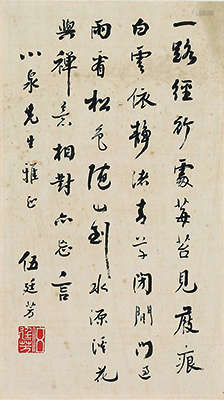 一路經行處莓苔見履痕
白雲依靜渚春草閉閒門過
雨看松色隨山到水源溪花
與禪意相對亦忘言
小泉先生雅正
伍廷芳